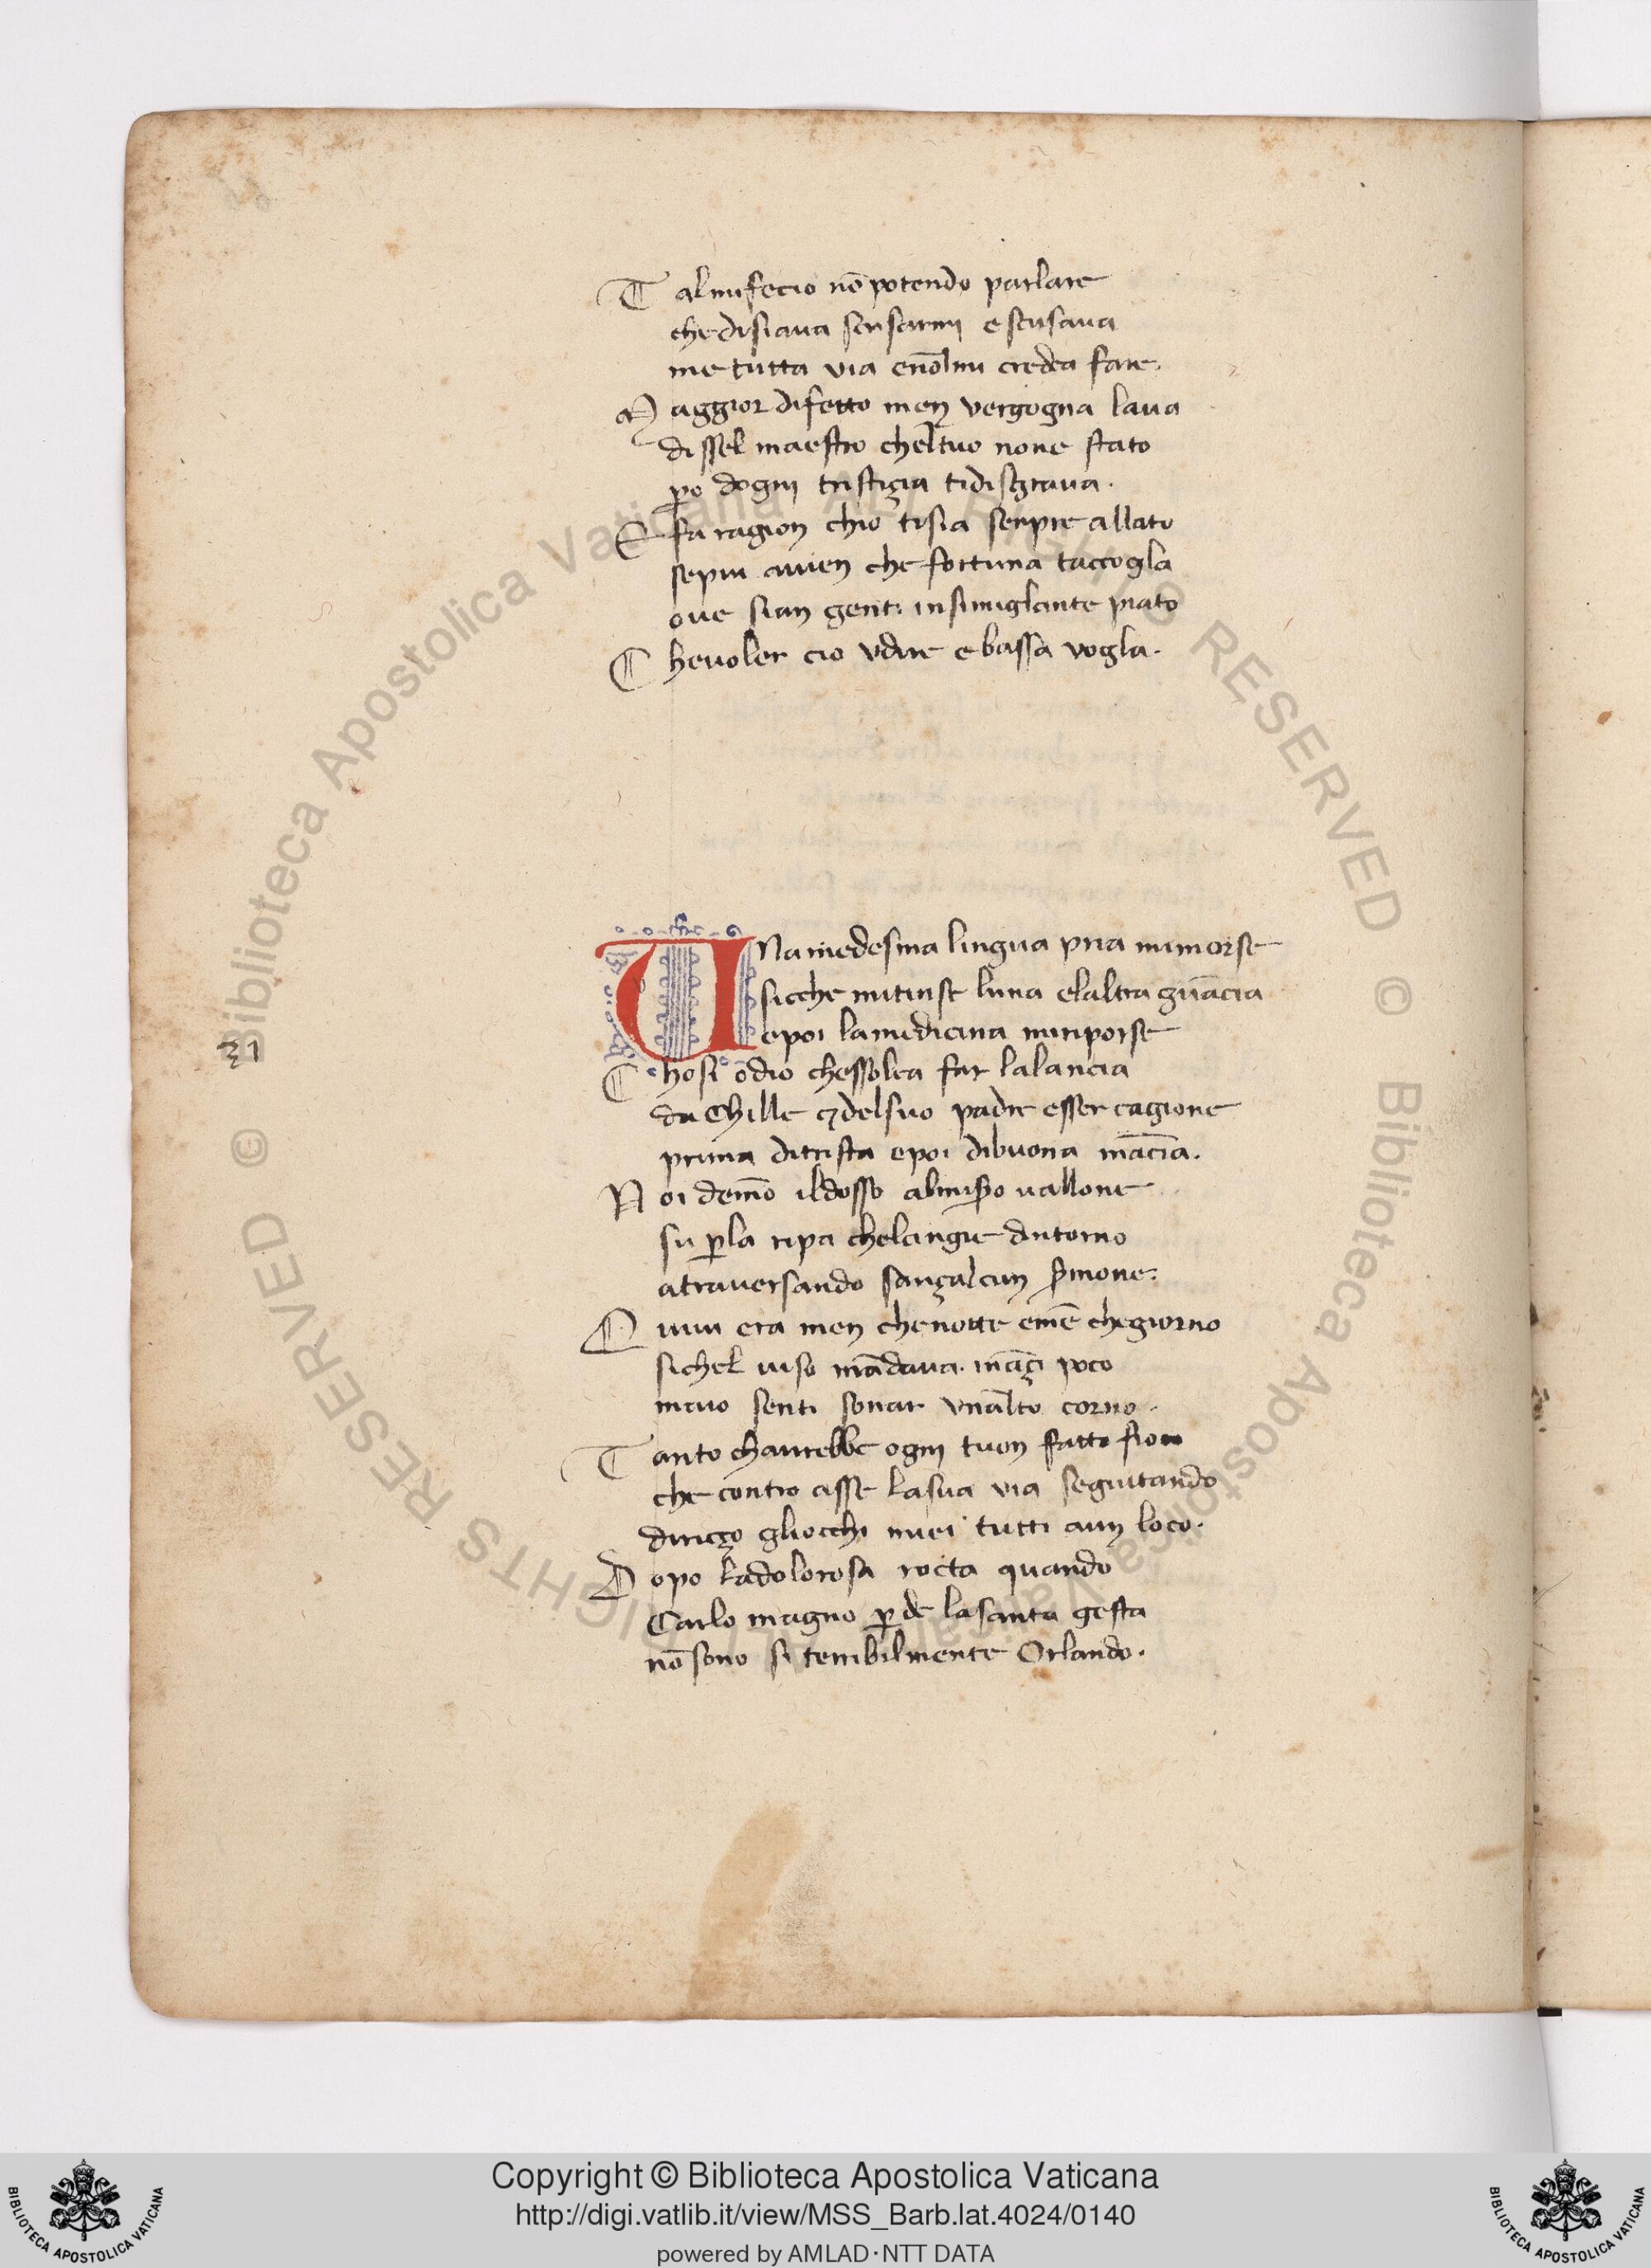 T almifecio nō potendo parlare
che disiaua scusarmi e scusaua
me tutta via enōlmi credea fare.
M aggior difetto men vergogna laua
dissel maestro chel tuo none stato
però dogni tristiçia tidisgraua.
E fa ragion chio tisia senpre allato
sepiu auien che fortuna taccogla
oue sian genti insimiglante piato
C heuoler cio vdire e bassa vogla.
U Na medesma lingua pria mimorse
sicche mitinse luna elaltra guācia
epoi lamedicina miriporse
C hosi odio chessolea far lalancia
da Chille ꝛ delsuo padre esser cagione
prima ditrista epoi dibuona mācia.
N oi demo ildosso almiſ̄o uallone
su ꝑla ripa chelcinge dintorno
atraversando sança lcun ſ̄mone.
Q uiui era men chenotte emē chegiorno
sichel uiso mādaua. ināçi poco
maio senti sonar vnalto corno.
T anto chaurebbe ogni tuon fatto fioco
che contro asse lasua via seguitando
diriçço gliocchi miei tutti aun loco.
D opo ladolorosa rocta quando
Carlo magno ꝑde lasanta gesta
nō sono si terribilmente Orlando.
31
© Biblioteca Apostolica Vaticana ALL RIGHTS RESERVED
© Biblioteca Apostolica Vaticana ALL RIGHTS RESERVED
Copyright © Biblioteca Apostolica Vaticana
http://digi.vatlib.it/view/MSS_Barb.lat.4024/0140
powered by AMLAD·NTT DATA
BIBLIOTECA APOSTOLICA VATICANA
BIBLIOTECA APOSTOLICA VATICANA